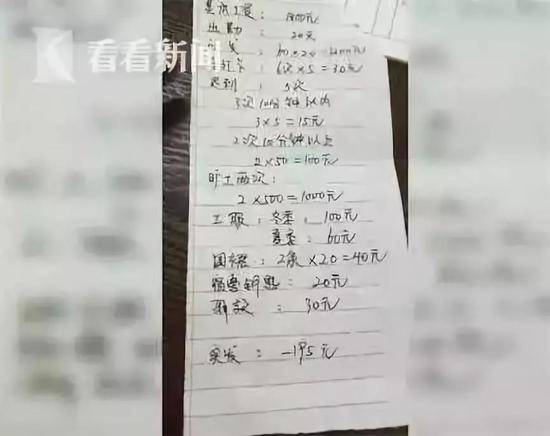 看看新闻
基本工资: 1800元
出勤: 20天
60×20=1200元
6次×5=30元
迟到: 5次
3次10分钟以内
3×5=15元
2次10分钟以上
2×50=100元
旷工两次:
2×500=1000元
工服: 冬季: 100元
夏季: 60元
围裙: 2条×20=40元
宿舍钥匙: 20元
30元
实发: -195元